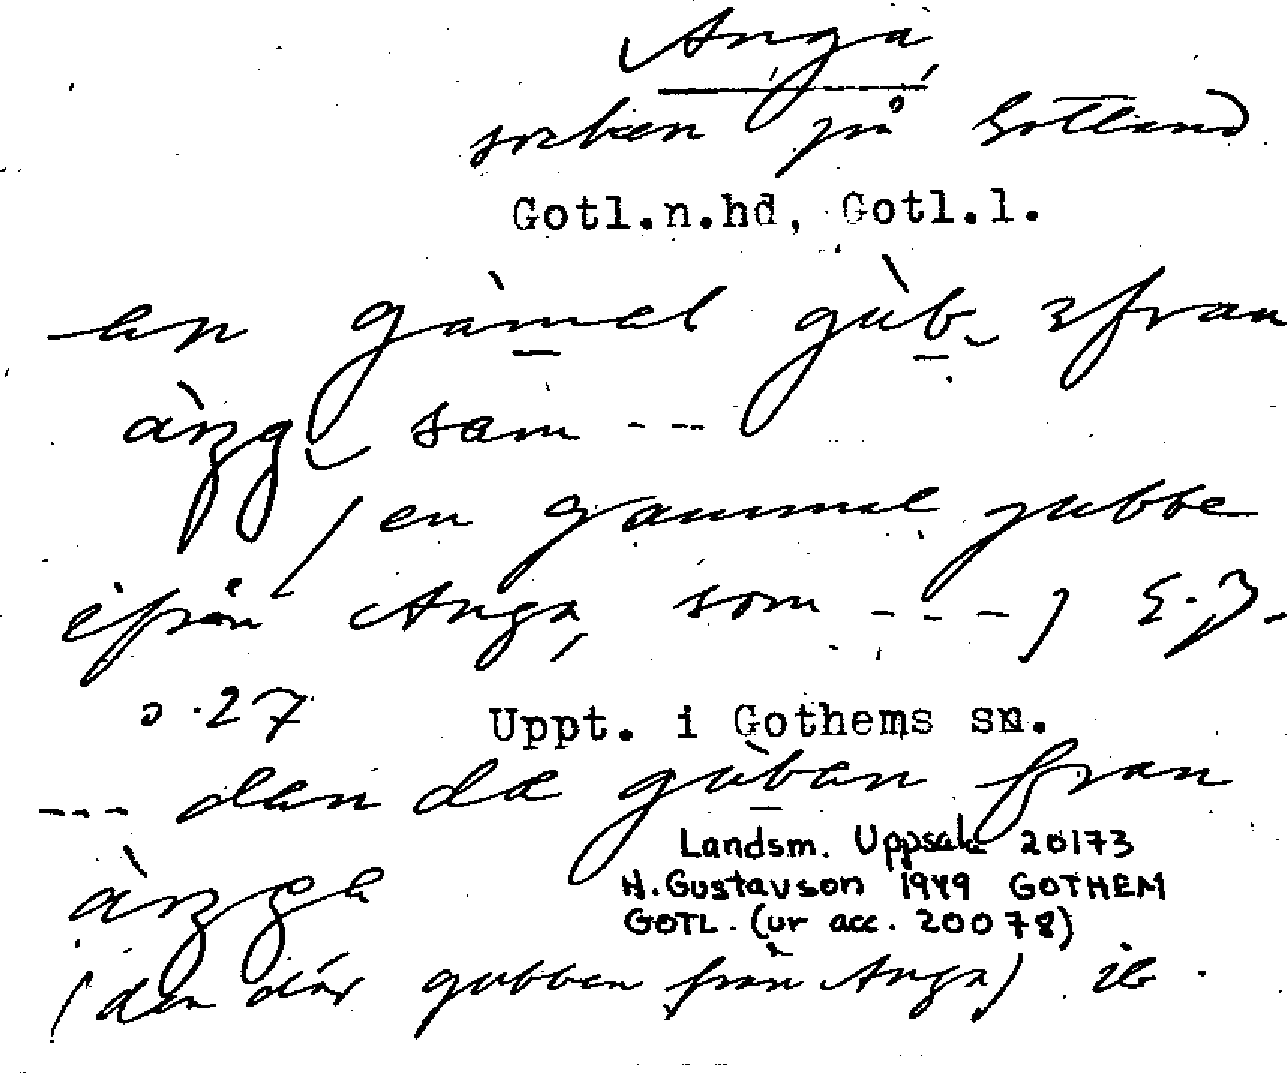 Anga,
socken på Gotland
Gotl.n.hd, Gotl.l.
en gàmel gùb ifran
àŋg som ---
(en gammel gubbe
ifrån Anga, som ---) E.J.
s.27
Uppt. i Gothems sn.
--- dan dæ gùban fran
àŋga
Landsm. Uppsala 20173
H. Gustavson 1949 GOTHEM
GOTL. (ur acc. 20078)
(den där gubben från Anga) ib.